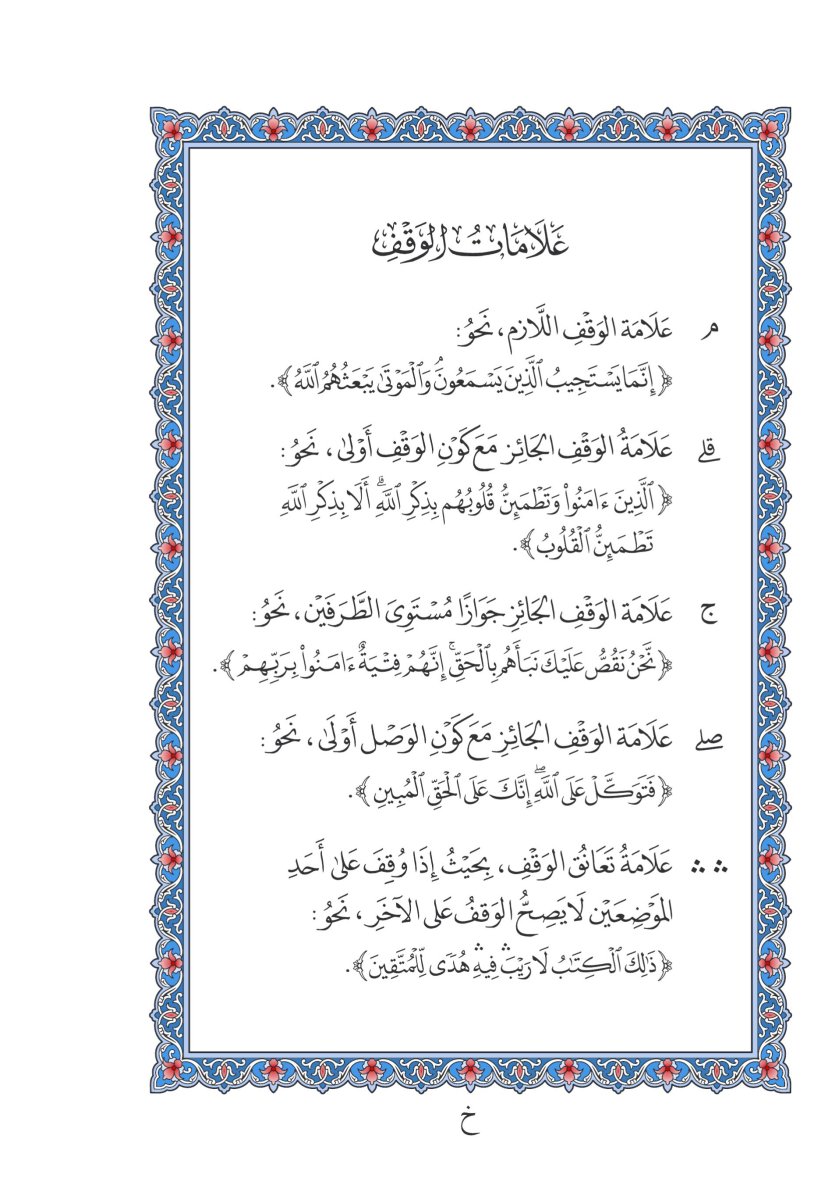 عَلَامَاتُ الوَقْفِ
م عَلَامَة الوَقْفِ اللَّازِم، نَحْوُ:
﴿إِنَّمَا يَسْتَجِيبُ ٱلَّذِينَ يَسْمَعُونَۘ وَٱلْمَوْتَىٰ يَبْعَثُهُمُ ٱللَّهُ﴾.
قلے عَلَامَةُ الوَقْفِ الجَائِز مَعَ كَوْنِ الوَقْفِ أَوْلىٰ، نَحْوُ:
﴿ٱلَّذِينَ ءَامَنُوا۟ وَتَطْمَئِنُّ قُلُوبُهُم بِذِكْرِ ٱللَّهِۗ أَلَا بِذِكْرِ ٱللَّهِ
تَطْمَئِنُّ ٱلْقُلُوبُ﴾.
ج عَلَامَة الوَقْفِ الجَائِزِ جَوَازًا مُسْتَوِىَ الطَّرَفَيْن، نَحْوُ:
﴿نَّحْنُ نَقُصُّ عَلَيْكَ نَبَأَهُم بِٱلْحَقِّۚ إِنَّهُمْ فِتْيَةٌ ءَامَنُوا۟ بِرَبِّهِمْ﴾.
صلے عَلَامَة الوَقْفِ الجَائِزِ مَعَ كَوْنِ الوَصْل أَوْلَىٰ، نَحْوُ:
﴿فَتَوَكَّلْ عَلَى ٱللَّهِۖ إِنَّكَ عَلَى ٱلْحَقِّ ٱلْمُبِينِ﴾.
∴ ∴ عَلَامَةُ تَعَانُق الوَقْفِ، بِحَيْثُ إِذَا وُقِفَ عَلىٰ أَحَدِ
المَوْضِعَيْن لَا يَصِحُّ الوَقفُ عَلى الآخَرِ، نَحْوُ:
﴿ذَٰلِكَ ٱلْكِتَٰبُ لَا رَيْبَۛ فِيهِۛ هُدًى لِّلْمُتَّقِينَ﴾.
خ